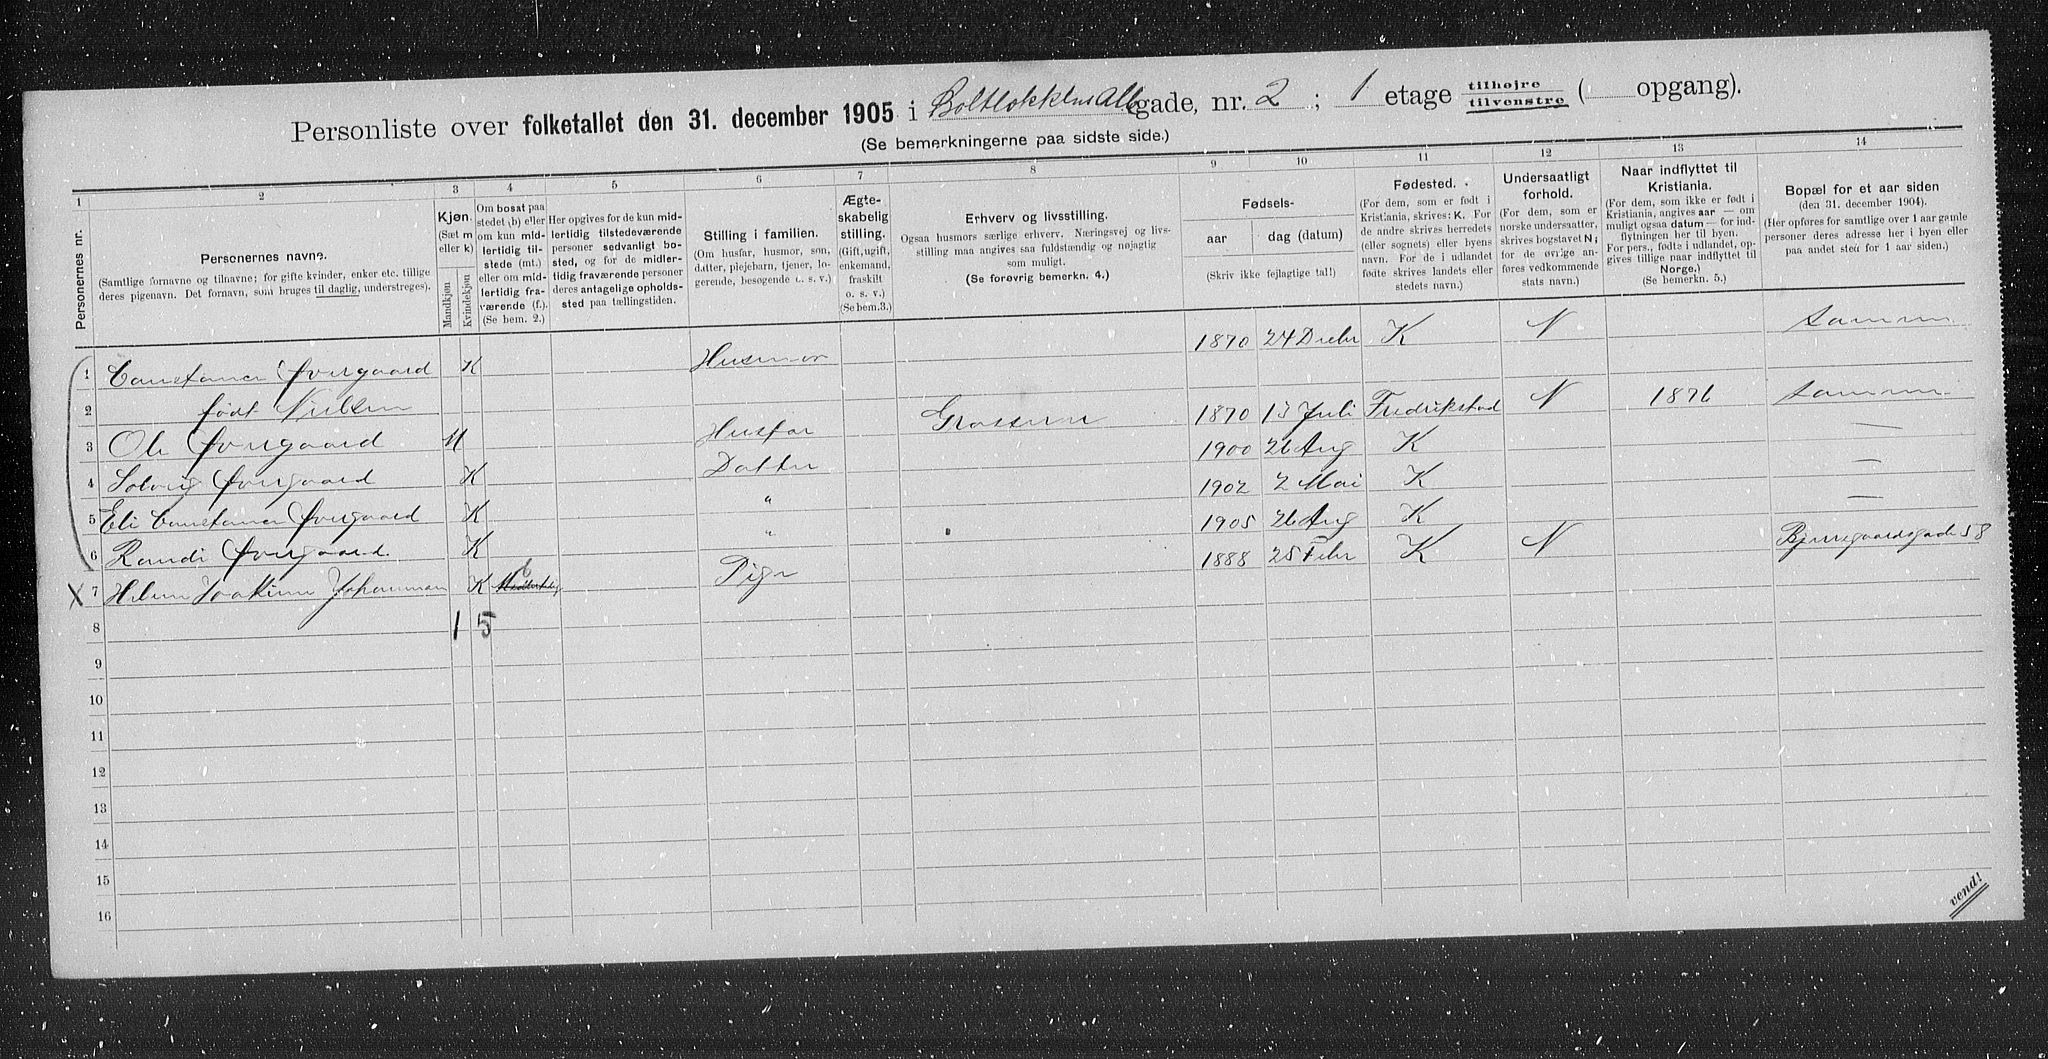 Personliste over folketallet den 31. december 1905 i Boltløkkens Alle gade, nr. 2 ; 1 etage tilhøjre tilvenstre ( opgang).
(Se bemerkningerne paa sidste side.)
1 2 3 4 5 6 7 8 9 10 11 12 13 14
Personernes nr.
Personernes navne.
(Samtlige fornavne og tilnavne; for gifte kvinder, enker etc. tillige
deres pigenavn. Det fornavn, som bruges til daglig, understreges).
Kjøn.
(Sæt m
eller k)
Mandkjøn
Kvindekjøn
Om bosat paa
stedet (b) eller
om kun midlertidig
tilstede (mt.)
eller om midlertidig
fraværende (f.).
(Se bem. 2.)
Her opgives for de kun midlertidig
tilstedeværende
personer sedvanligt bosted,
og for de midlertidig
fraværende personer
deres antagelige opholdssted
paa tællingstiden.
Stilling i familien.
(Om husfar, husmor, søn,
datter, plejebarn, tjener, logerende,
besøgende o. s. v.)
Ægteskabelig
stilling.
(Gift, ugift,
enkemand,
fraskilt
o. s. v.)
(Se bem.3.)
Erhverv og livsstilling.
Ogsaa husmors særlige erhverv. Næringsvej og livsstilling
maa angives saa fuldstændig og nøjagtig
som muligt.
(Se forøvrig bemerkn. 4.)
Fødsels-
aar dag (datum)
(Skriv ikke fejlagtige tal!)
Fødested.
(For dem, som er født i
Kristiania, skrives: K. For
de andre skrives herredets
(eller sognets) eller byens
navn. For de i udlandet
fødte skrives landets eller
stedets navn.)
Undersaatligt
forhold.
(For dem, som er
norske undersaatter,
skrives bogstavet N;
for de øvrige anføres
vedkommende
stats navn.)
Naar indflyttet til
Kristiania.
(For dem, som ikke er født i
Kristiania, angives aar — om
muligt ogsaa datum — for indflytningen
her til byen.
For pers., fødte i udlandet, opgives
tillige naar indflyttet til
Norge.)
(Se bemerkn. 5.)
Bopæl for et aar siden
(den 31. december 1904).
(Her opføres for samtlige over 1 aar gamle
personer deres adresse her i byen eller
paa andet sted for 1 aar siden).
1 Constance Øvergaard K Husmor 1870 24 Decbr K N Samme
2 født Nielsen
3 Ole Øvergaard M Husfar Grosserer 1870 13 Juli Fredrikstad N 1876 Samme
4 Solveig Øvergaard K Datter 1900 26 Aug K —
5 Eli Constance Øvergaard K " 1902 2 Mai K —
6 Randi Øvergaard K " 1905 26 Aug K —
X 7 Helene Joakime Johannesen K b Pige 1888 25 Febr K N Bjerregaardsgade 58
8 1 5
9
10
11
12
13
14
15
16
vend!